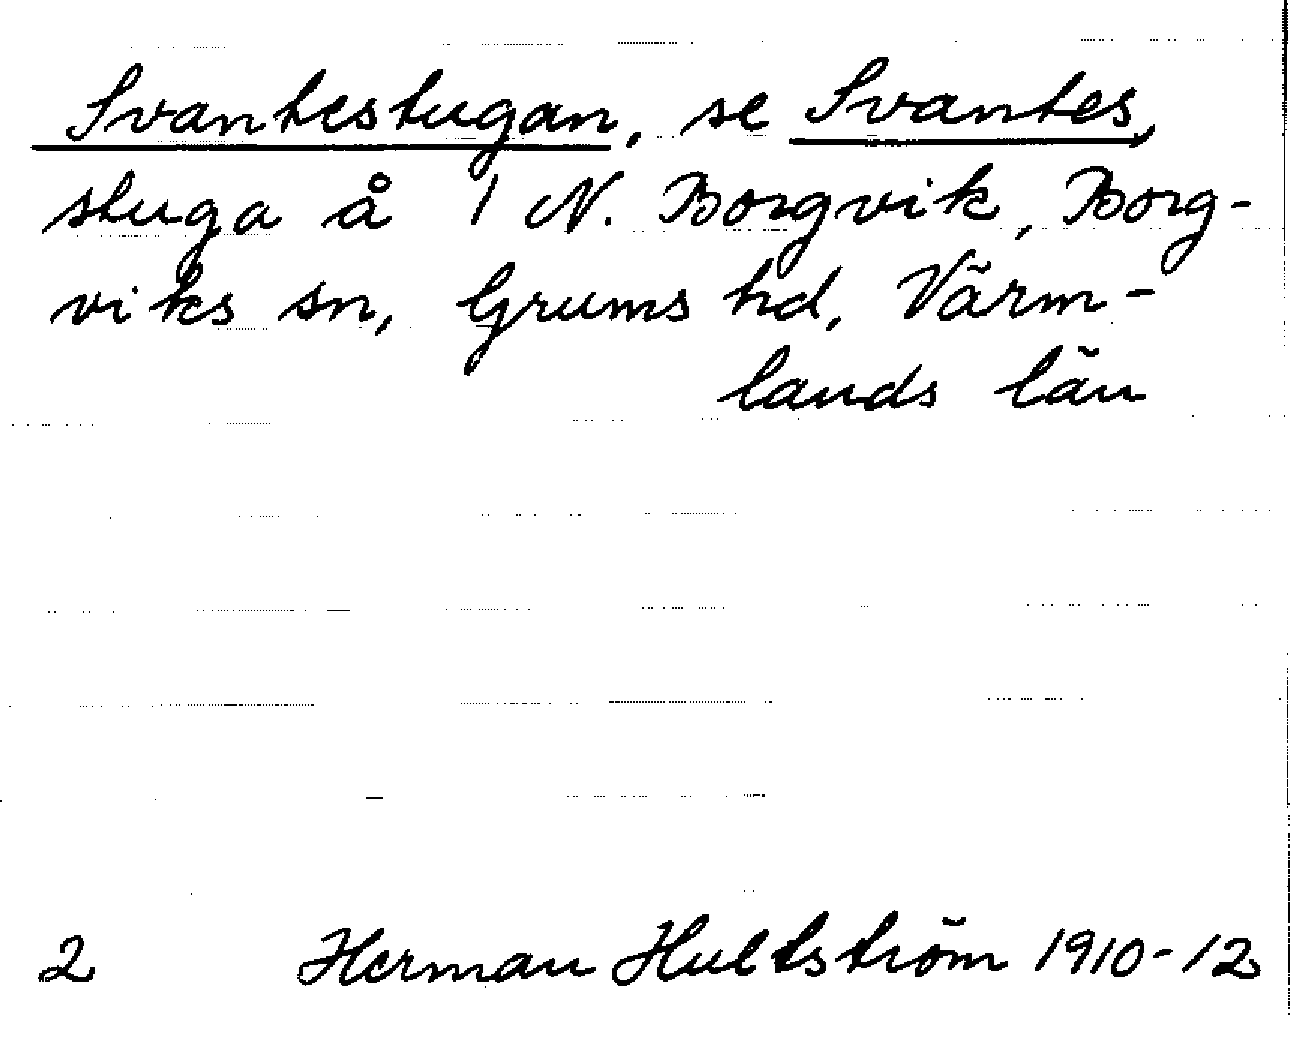 Svantestugan, se Svantes,
stuga å 1 N. Borgvik, Borg-
viks sn, Grums hd, Värm-
lands län
2 Herman Hultström 1910-12